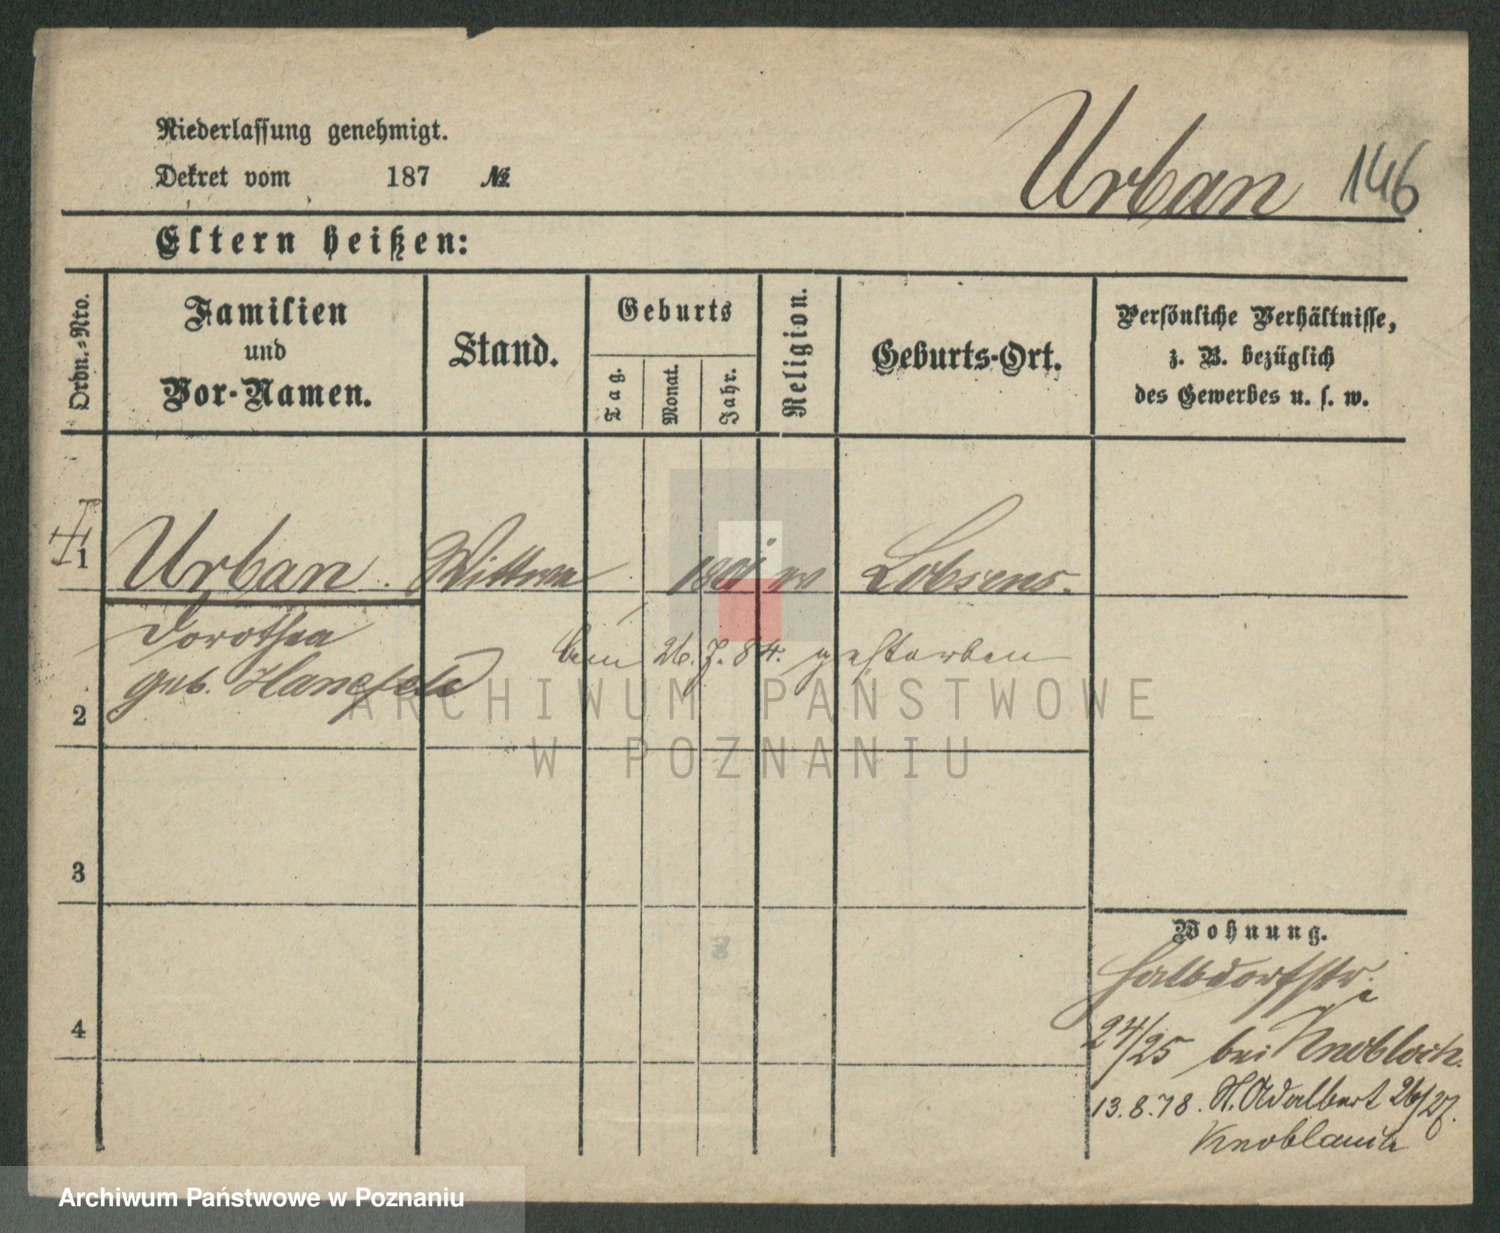 Niederlassung genehmigt.
Dekret vom 187 №
Urban 146
Eltern heißen:
Ordn.-Nro.
Familien
und
Vor-Namen.
Stand.
Geburts
Tag.
Monat.
Jahr.
Religion.
Geburts-Ort.
Persönliche Verhältnisse,
z. B. bezüglich
des Gewerbes u. s. w.
1 Urban Wittwe Lobsens.
Dorothea
geb. Hanefeld
26. 7. 84. gestorben
2
3
4
Wohnung.
Halbdorfstr.
24/25 bei Knobloch.
13. 8. 78. St. Adalbert 26/27.
Knoblauch
ARCHIWUM PAŃSTWOWE
W POZNANIU
Archiwum Państwowe w Poznaniu